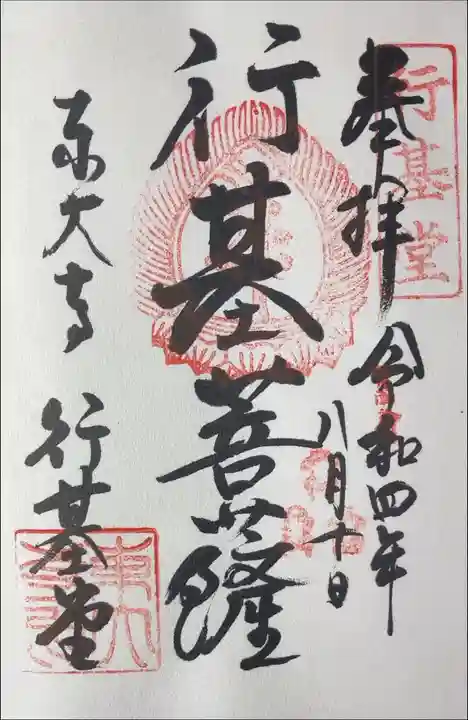 奉拝
行基堂
令和四年
八月十日
行基菩薩
東大寺
行基堂